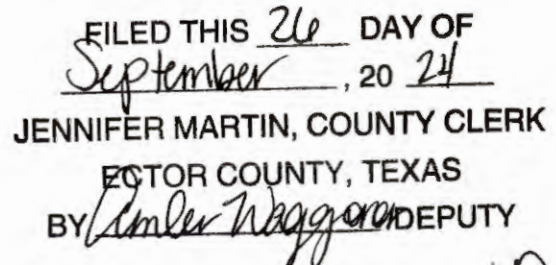 FILED THIS 26 DAY OF
September, 20 24
JENNIFER MARTIN, COUNTY CLERK
ECTOR COUNTY, TEXAS
BY DEPUTY